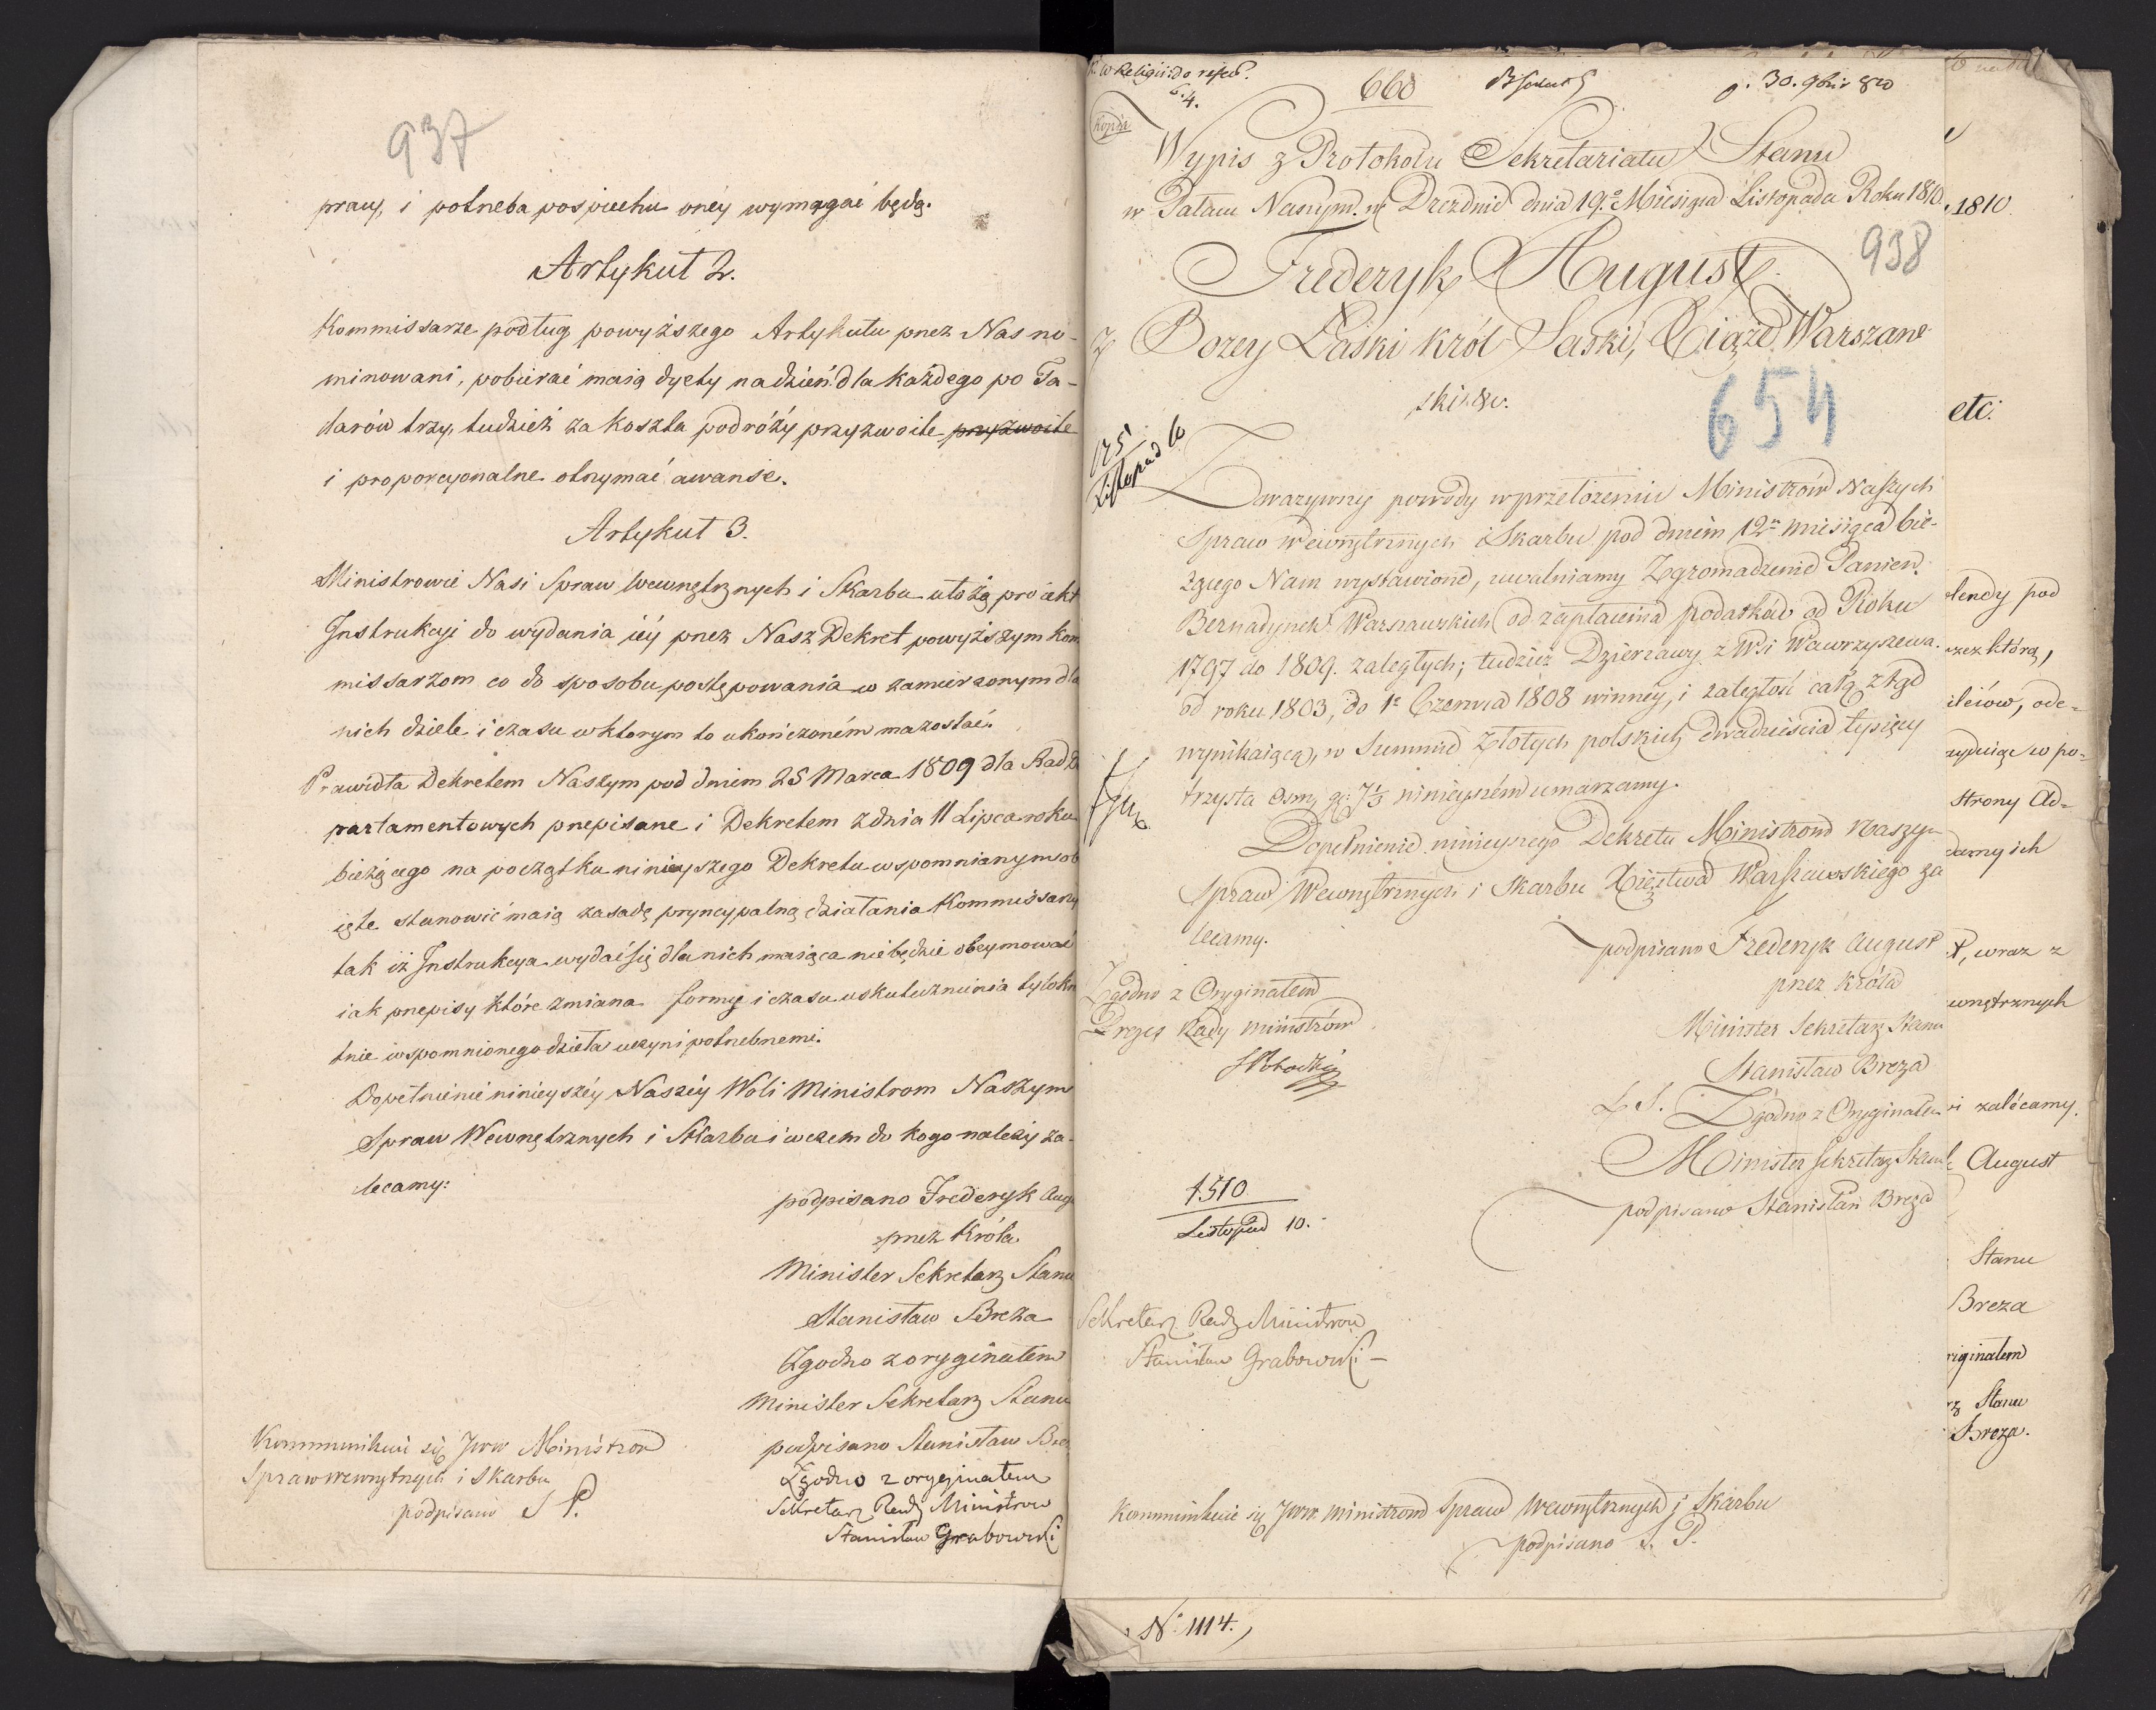 937
pracy, i potrzeba pospiechu oney wymagać będą.
Artykuł 2.
Kommissarze podług powyższego Artykułu przez Nas no-
minowani, pobierać maią dyety na dzień dla każdego po Ta-
larów trzy, tudzież za koszta podróży przyzwoite przyzwoite
i proporcyonalne otrzymać awanse.
Artykuł 3.
Ministrowie Nasi Spraw Wewnętrznych i Skarbu ułożą proiekt
Instrukcyi do wydania iéy przez Nasz Dekret powyższym kom
missarzom co do sposobu postępowania w zamierzonym dla
nich dziele i czasu w ktorym to ukończoném ma zostać.
Prawidła Dekretem Naszym pod dniem 25 Marca 1809 dla Rad De
partamentowych przepisane i Dekretem z dnia 11 Lipca roku
bieżącego na początku ninieyszego Dekretu wspomnianym ob
ięte stanowić maią zasadę pryncypalną działania Kommissarzy
tak iż Instrukcya wydać się dla nich maiąca nie będzie obeymować
iak przepisy które zmiana formy i czasu uskutecznienia tylokro
tnie wspomnionego dzieła uczyni potrzebnemi.
Dopełnienie ninieyszéy Naszéy Woli Ministrom Naszym
Spraw Wewnętrznych i Skarbu i w czem do kogo należy za-
lecamy:
podpisano Frederyk Augu
przez Króla
Minister Sekretarz Stanu
Stanisław Breza
Zgodno z oryginałem
Minister Sekretarz Stanu
podpisano Stanisław Brez
Kommunikuie się JWW Ministrom
Spraw wewnętrznych i Skarbu
podpisano S P.
Zgodno z oryginałem
Sekretarz Rady Ministrow
Stanisław Grabowski
W Religii do
6.4.
660
30. 9bris 810
Kopia
Wypis z Protokołu Sekretariatu Stanu
w Pałacu Naszym w Dreznie dnia 19.º Miesiąca Listopada Roku 1810.
938
Frederyk August
Z Bozey Łaski Król Saski, Xiąże Warszaw
ski &&.
654
125
Listopad 10
Zważywszy powody w przełożeniu Ministrów Naszych
Spraw Wewnętrznych i Skarbu pod dniem 12m miesiąca bie-
żącego Nam wystawione, uwalniamy Zgromadzenie Panien
Bernadynek Warszawskich od zapłacenia podatków od Roku
1797 do 1809. zaległych; tudzież Dzierzawy z Wsi Wawrzyszewa
od roku 1803, do 1º Czerwca 1808 winney, i zaległość całą ztąd
wynikaiącą, w Summie Złotych polskich dwadzieścia tysięcy
trzysta Osm, gr: 7⅓ ninieyszém umarzamy.
Dopełnienie ninieyszego Dekretu Ministrom Naszym
Spraw Wewnętrznych i Skarbu Xięstwa Warszawskiego za
lecamy.
podpisano Frederyk August
przez Króla
Minister Sekretarz Stanu
Stanisław Breza
Zgodno z Oryginałem
Prezes Rady Ministrów
L. S. Zgodno z Oryginałem
Minister Sekretarz Stanu
podpisano Stanisław Breza
1510
Listopad 10.
Sekretarz Rady Ministrow
Stanisław Grabowski
Kommunikuie się JWW. Ministrom Spraw Wewnętrznych i Skarbu
podpisano S. P.
Nº 1114.
1810
etc.
lendy pod
zez którą,
ode=
w po=
strony Ad=
damy ich
wraz z
wnętrznych
zalécamy.
August
Stanu
Breza
riginałem
rz Stanu
Breza.